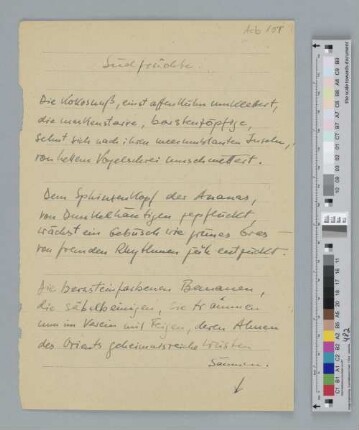 Südfrüchte.
Die Kokosnuß, einst affenkühn umklettert,
die muttenstarre, borstenzöpfige,
sehnt sich nach ihren meerumblauten Inseln,
von hellem Vogelschrei umschmettert.
Dem Sphinxenkopf der Ananas,
von Dunkelhäutigen gepflückt,
wächst ein Gebüsch wie grünes Gras
von fremden Rhythmen jäh entzückt.
Die bernsteinfarbenen Bananen,
die säbelbeinigen, sie träumen
nun im Verein mit Feigen, deren Ahnen
des Orients geheimnisreiche Wüsten
säumen.
482